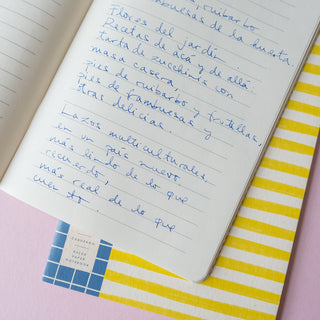 ruibarbo
frambuesas de la huerta.
Flores del jardín.
Recetas de acá y de allá:
tarta de zucchinis con
masa casera,
pies de ruibarbo y frutillas,
pies de frambuesas y
otras delicias.
Lazos multiculturales
en un país nuevo
más lindo de lo que
recuerdo,
más real de lo que
cuento.
CUADERNO
PAPER
NOTEBOOK